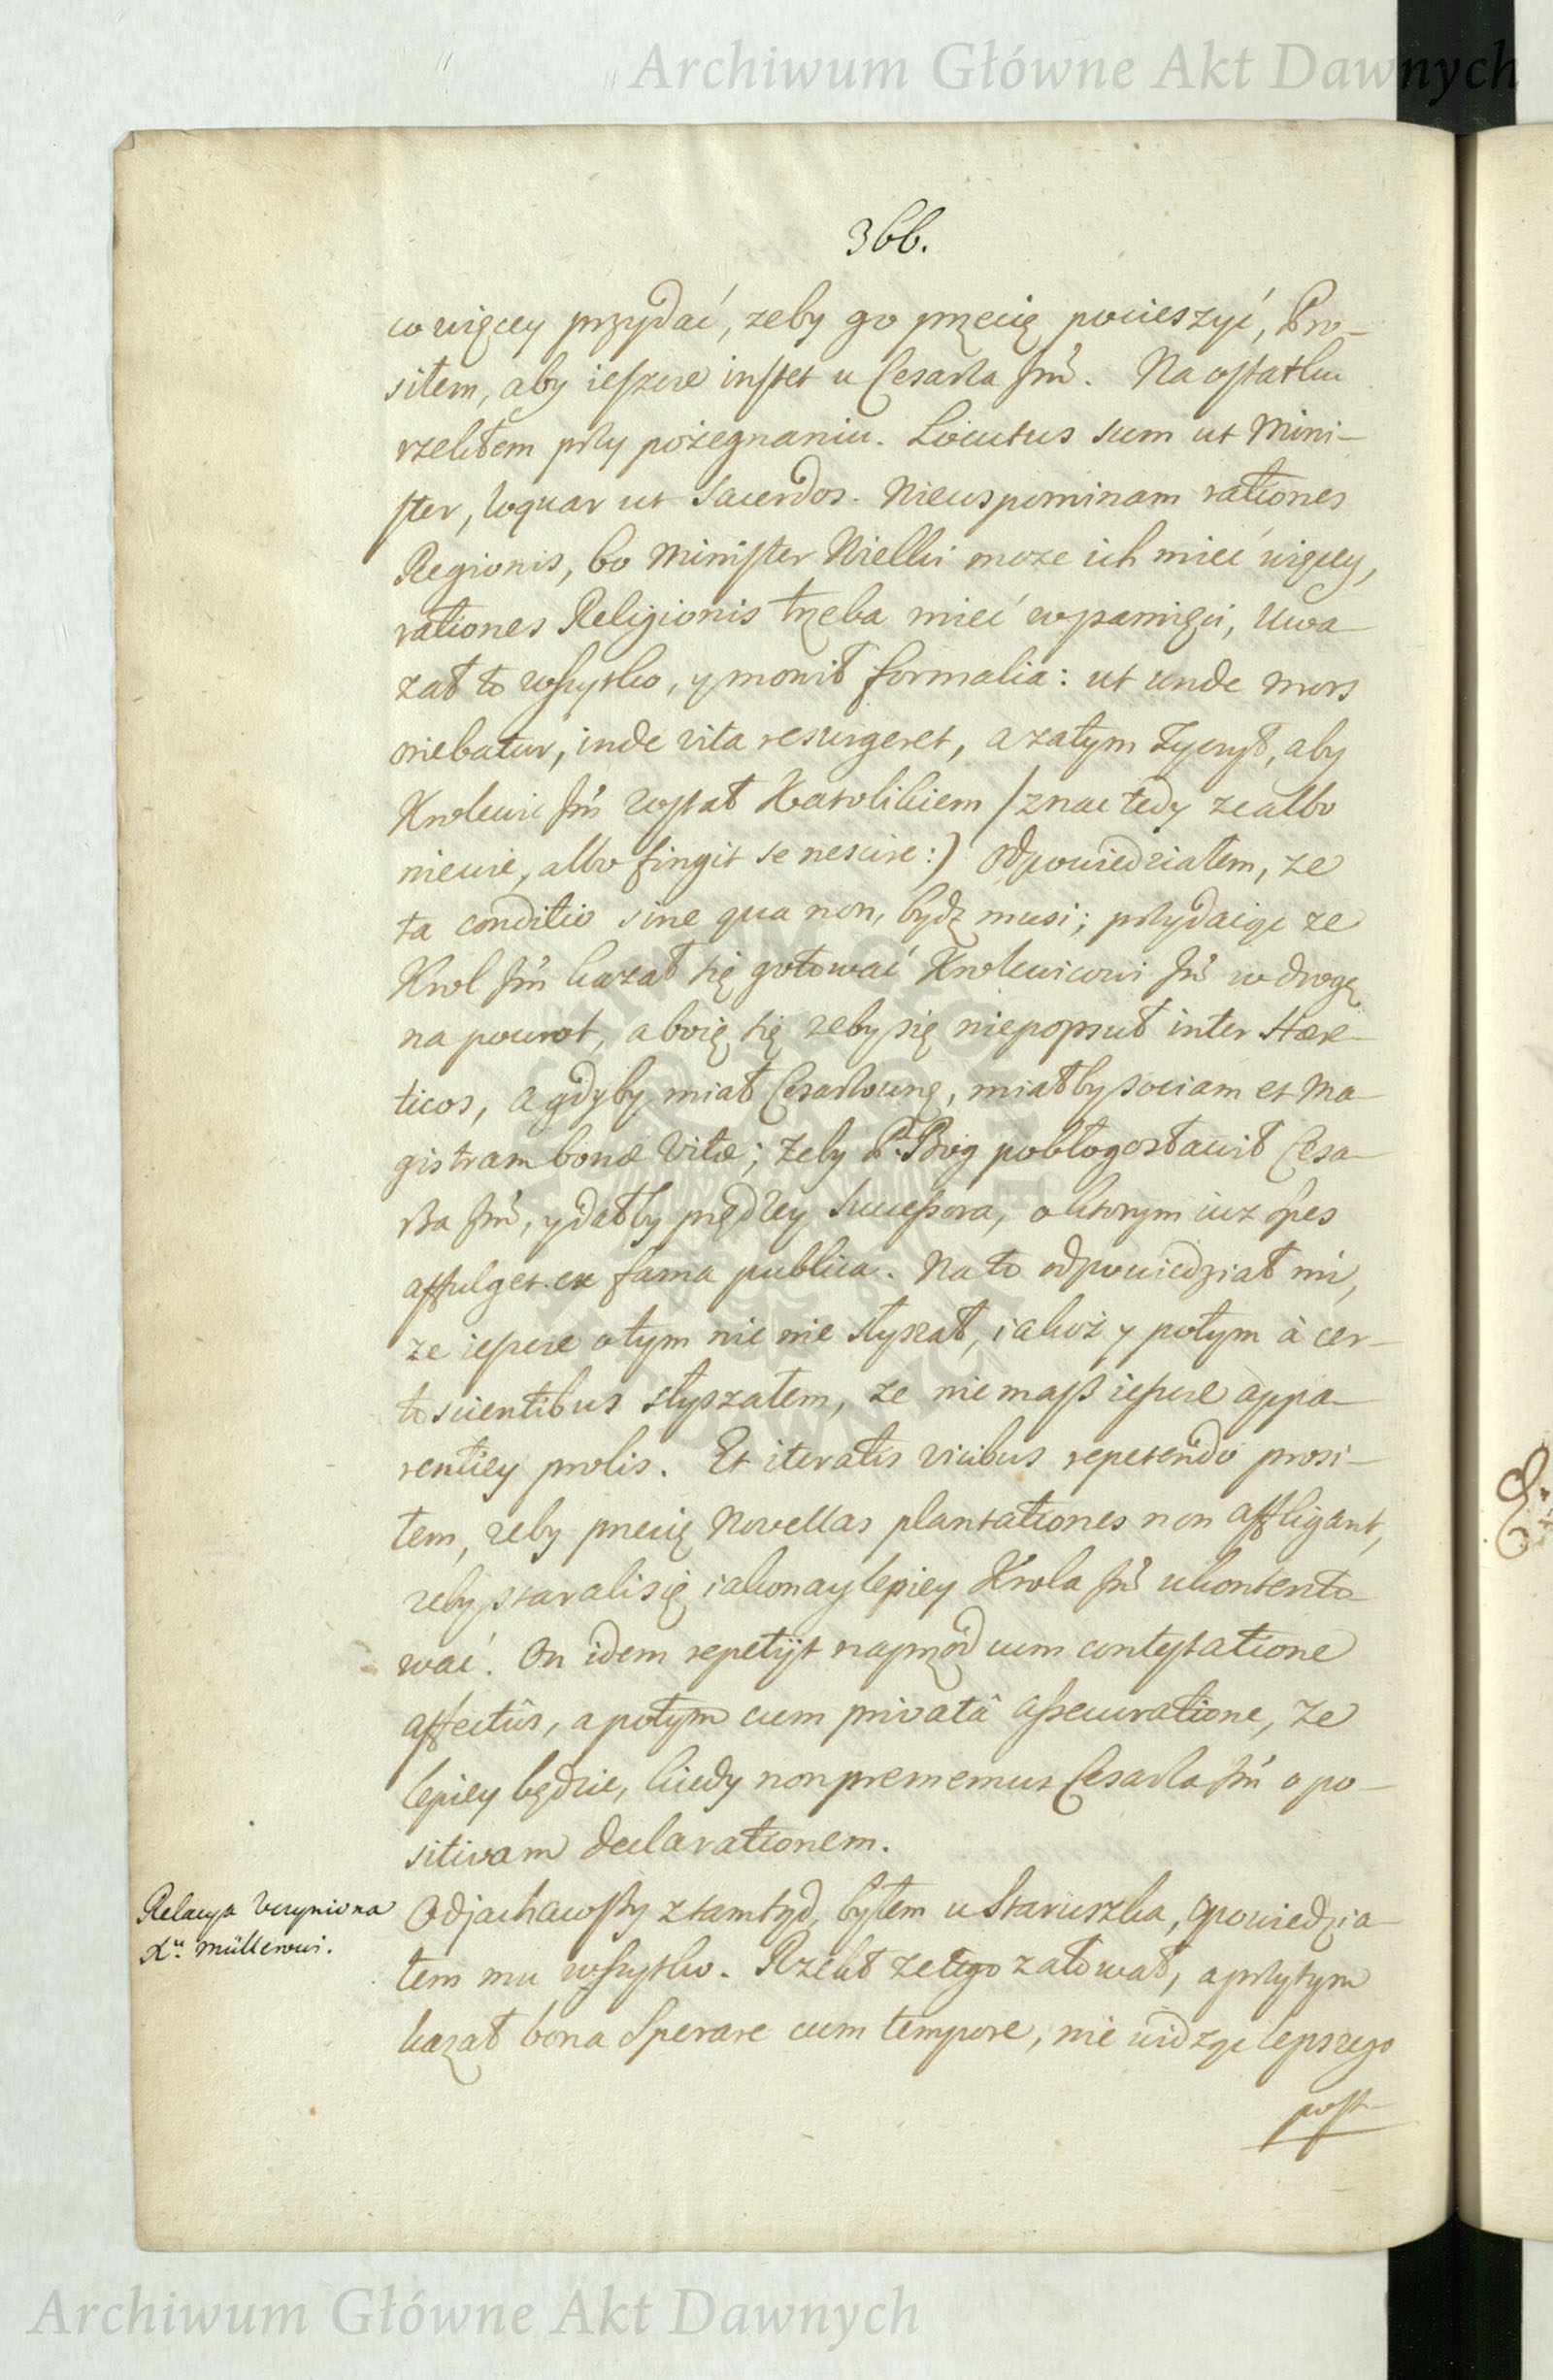 Archiwum Główne Akt Dawnych
366.
co więcey przydać, zeby go przecię pocieszyć, Pro-
siłem, aby ieszcze instet u Cesarza Jm̃. Na ostatku
rzekłem przy pożegnaniu. Locutus sum ut Mini-
ster, loquar ut Sacerdos. Niewspominam rationes
Regionis, bo Minister Wielki moze ich mieć więcey,
rationes Religionis trzeba mieć w pamięci, Uwa-
zał to wszystko, y mowił formalia: ut unde mors
oriebatur, inde vita resurgeret, a zatym życzył, aby
Krolewic Jm̃ został Katolikiem /znac tedy ze albo
niewie, albo fingit se nescire:) Odpowiedziałem, ze
ta conditio sine qua non, bydz musi; przydaiąc ze
Krol Jm̃ kazał się gotować Krolewicowi Jm̃ w drogę
na powrot, a boię się zeby się niepopsuł inter Hære-
ticos, a gdyby miał Cesarzownę, miałby sociam et Ma-
gistram bonæ Vitæ; żeby P. Bóg pobłogosławił Cesa-
rza Jm̃, y dałby prędzey Successora, o ktorym iuz spes
affulget ex fama publica. Na to odpowiedział mi,
ze ieszcze o tym nic nie słyszał, iakoż y potym à cer-
to scientibus słyszałem, ze nie masz ieszcze appa-
rentiey prolis. Et iteratis vicibus repetendo prosi-
łem, zeby przecię Novellas plantationes non affligant,
zeby starali się iako naylepiey Krola Jm̃ ukontento-
wać. On idem repetijt naprzód cum contestatione
affectûs, a potym cum privatâ assecuratione, ze
lepiey będzie, kiedy non prememus Cesarza Jm̃ o po-
sitivam declarationem.
Relacya Uczyniona
X.ᵘ Müllerowi.
Odjachawszy ztamtąd, byłem u Staruszka, opowiedzia-
łem mu wszystko. Rzekł ze tego załował, a przytym
kazał bona Sperare cum tempore, nie widząc lepszego
post-
Archiwum Główne Akt Dawnych